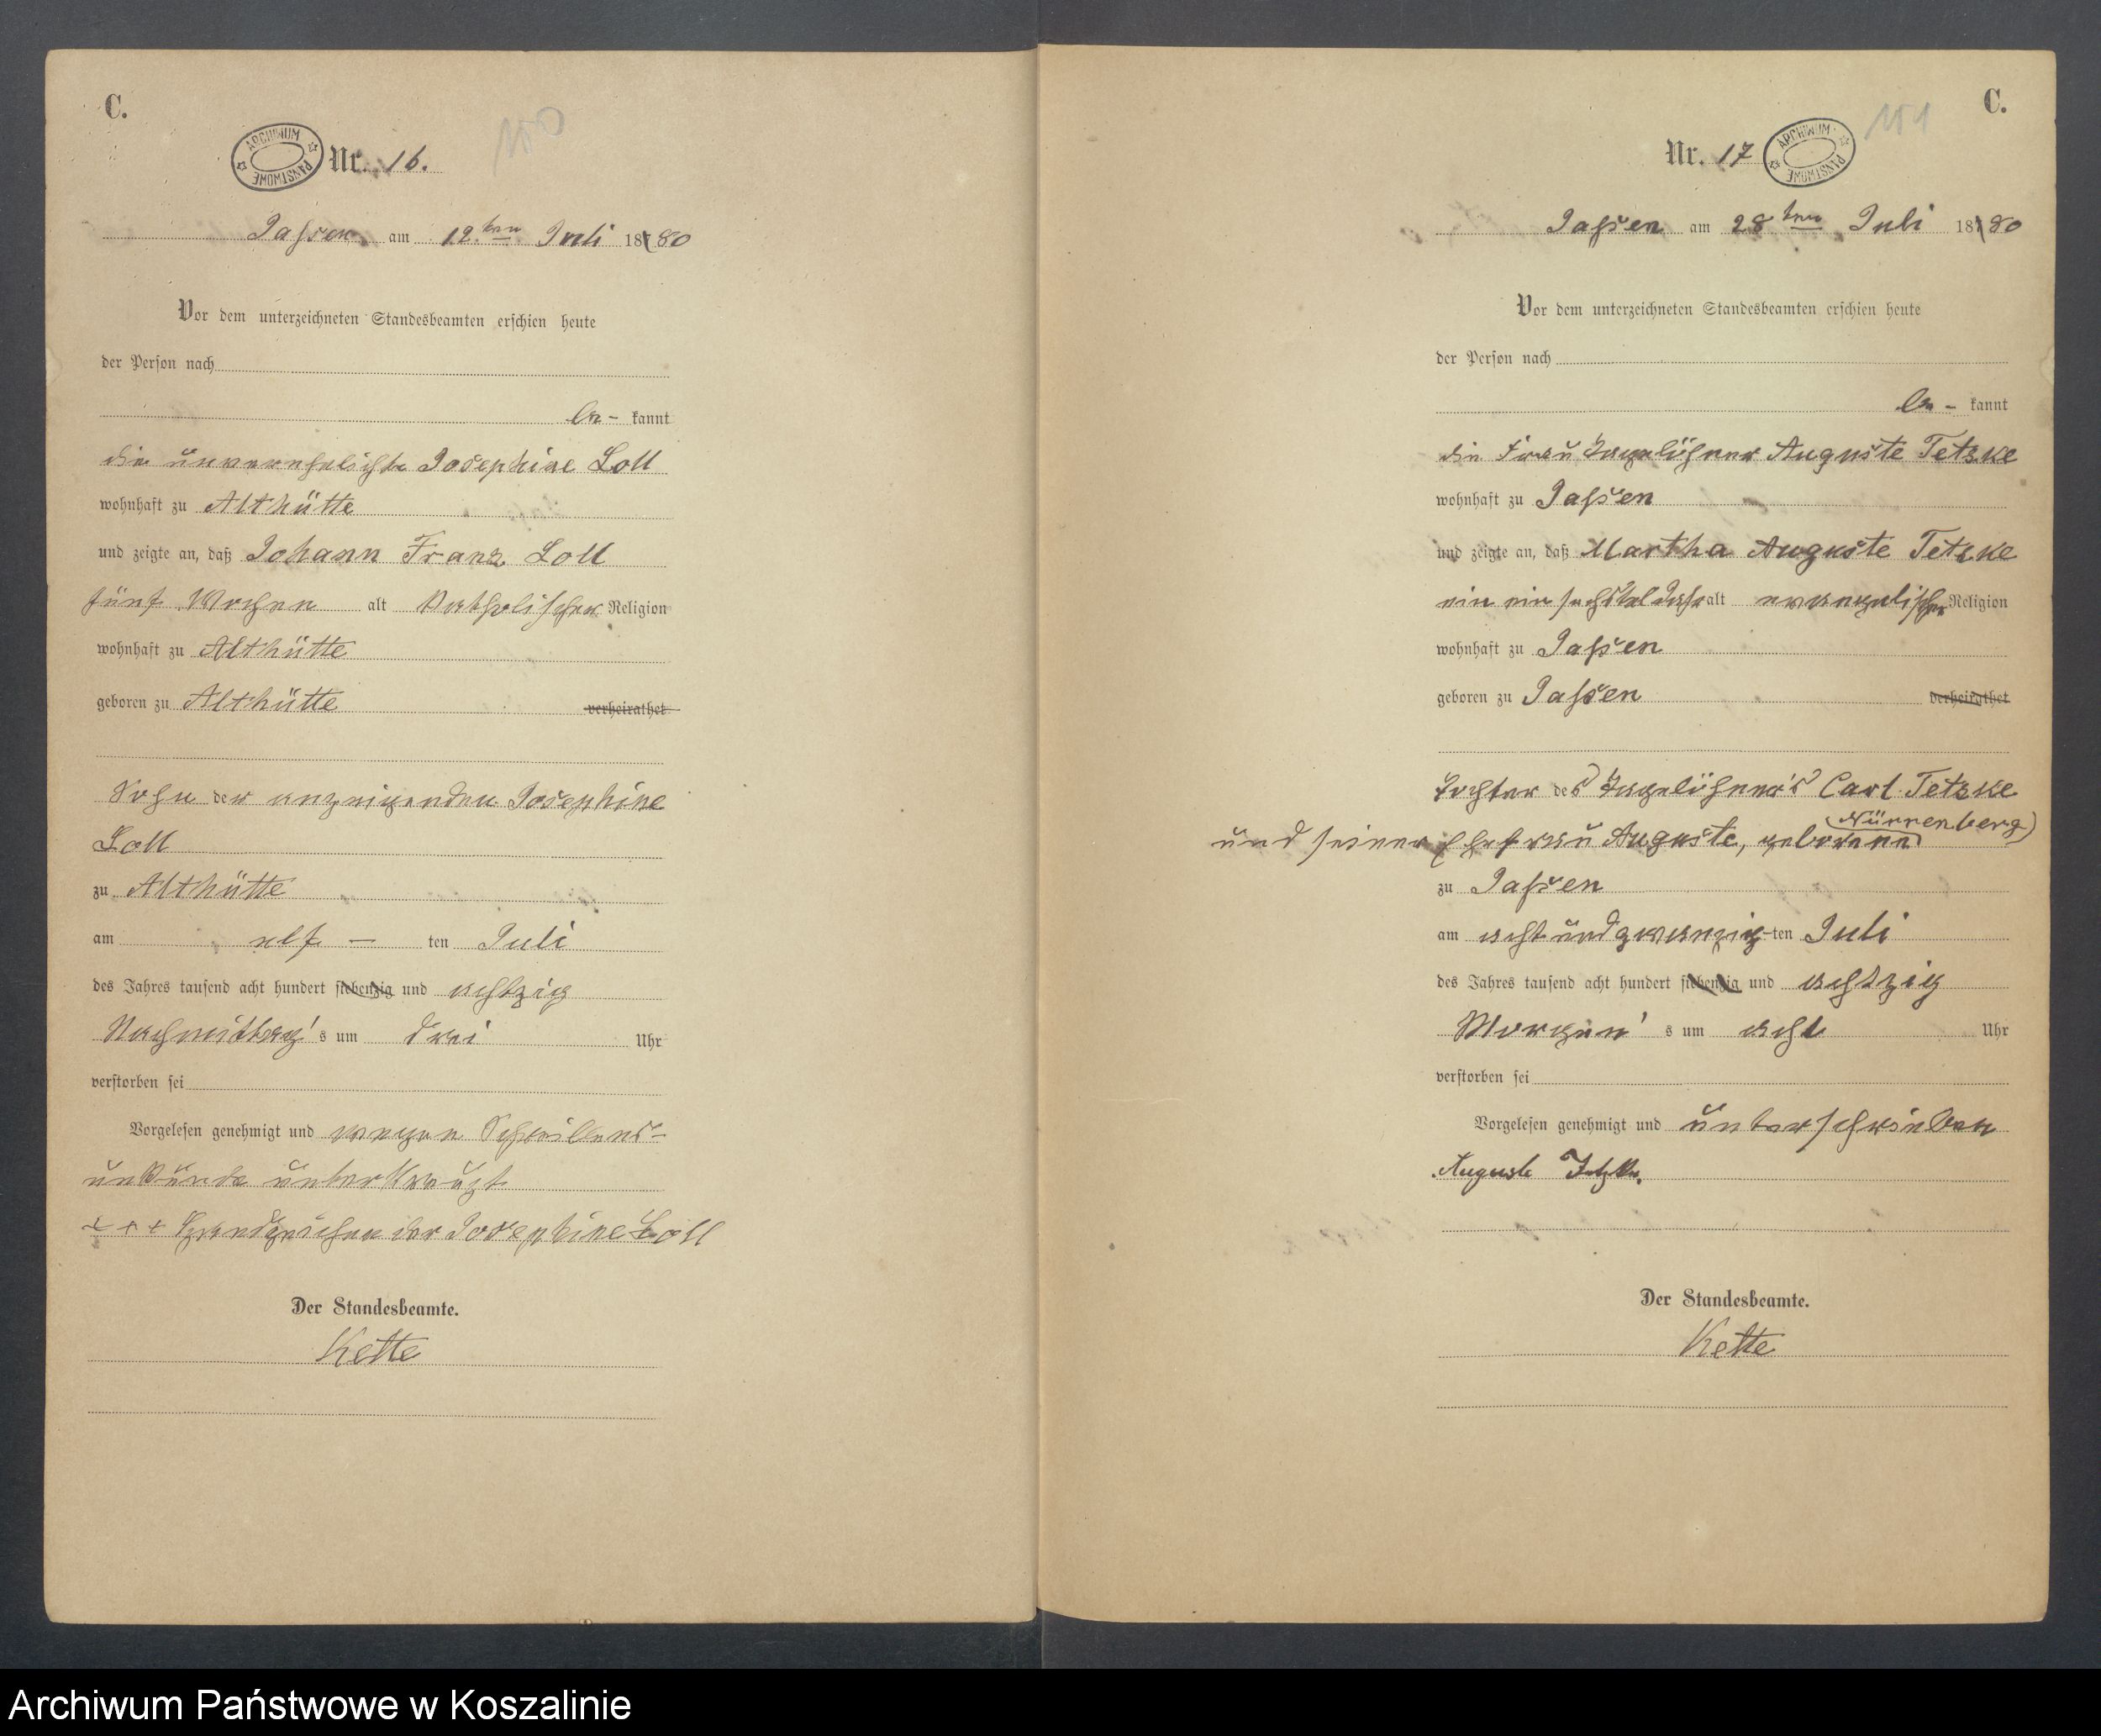 C.
150
ARCHIWUM PAŃSTWOWE
Nr. 16.
Jassen am 12.ten Juli 18780
Vor dem unterzeichneten Standesbeamten erschien heute
der Person nach
be- kannt
die unverehelichte Josephine Loll
wohnhaft zu Althütte
und zeigte an, daß Johann Franz Loll
fünf Wochen alt katholischer Religion
wohnhaft zu Althütte
geboren zu Althütte verheirathet
Sohn der anzeigenden Josephine
Loll
zu Althütte
am elf – ten Juli
des Jahres tausend acht hundert siebenzig und achtzig
Nachmittag's um drei Uhr
verstorben sei
Vorgelesen genehmigt und wegen Schreibens-
unkunde unterkreuzt
+ + + Handzeichen der Josephine Loll
Der Standesbeamte.
Kette
C.
151
Nr. 17
ARCHIWUM PAŃSTWOWE
Jassen am 28ten Juli 18780
Vor dem unterzeichneten Standesbeamten erschien heute
der Person nach
be- kannt
die Frau Tagelöhner Auguste Tetzke
wohnhaft zu Jassen
und zeigte an, daß Martha Auguste Tetzke
ein ein sechstel Jahr alt evangelischer Religion
wohnhaft zu Jassen
geboren zu Jassen verheirathet
Tochter des Tagelöhner's Carl Tetzke
und seiner Ehefrau Auguste, geborene (Nürrenberg)
zu Jassen
am acht und zwanzig-ten Juli
des Jahres tausend acht hundert siebenzig und achtzig
Morgen's um acht Uhr
verstorben sei
Vorgelesen genehmigt und unterschrieben
Auguste Tetzke.
Der Standesbeamte.
Kette
Archiwum Państwowe w Koszalinie